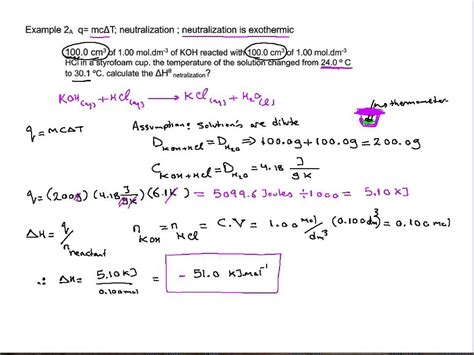 Example 2A  q= mcΔT; neutralization ; neutralization is exothermic
100.0 cm³ of 1.00 mol.dm⁻³ of KOH reacted with 100.0 cm³ of 1.00 mol.dm⁻³
HCl in a styrofoam cup. the temperature of the solution changed from 24.0 º C
to 30.1 ºC. calculate the ΔHᶿ netralization?
thermometer
KOH(aq) + HCl(aq) → KCl(aq) + H₂O(l)
q = MCΔT
Assumption: Solution's are dilute
D KOH+HCl = D H₂O ⇒ 100.0g + 100.0g = 200.0g
C KOH+HCl = D H₂O = 4.18 J/gK
q = (200g) (4.18 J/gK) (6.1K) = 5099.6 Joules ÷ 1000 = 5.10 KJ
ΔH = q/n reactant
n KOH = n HCl = C.V = 1.00 mol/dm³ (0.100dm³) = 0.100 mol
∴ ΔH = 5.10 KJ / 0.100mol = - 51.0 KJ.mol⁻¹